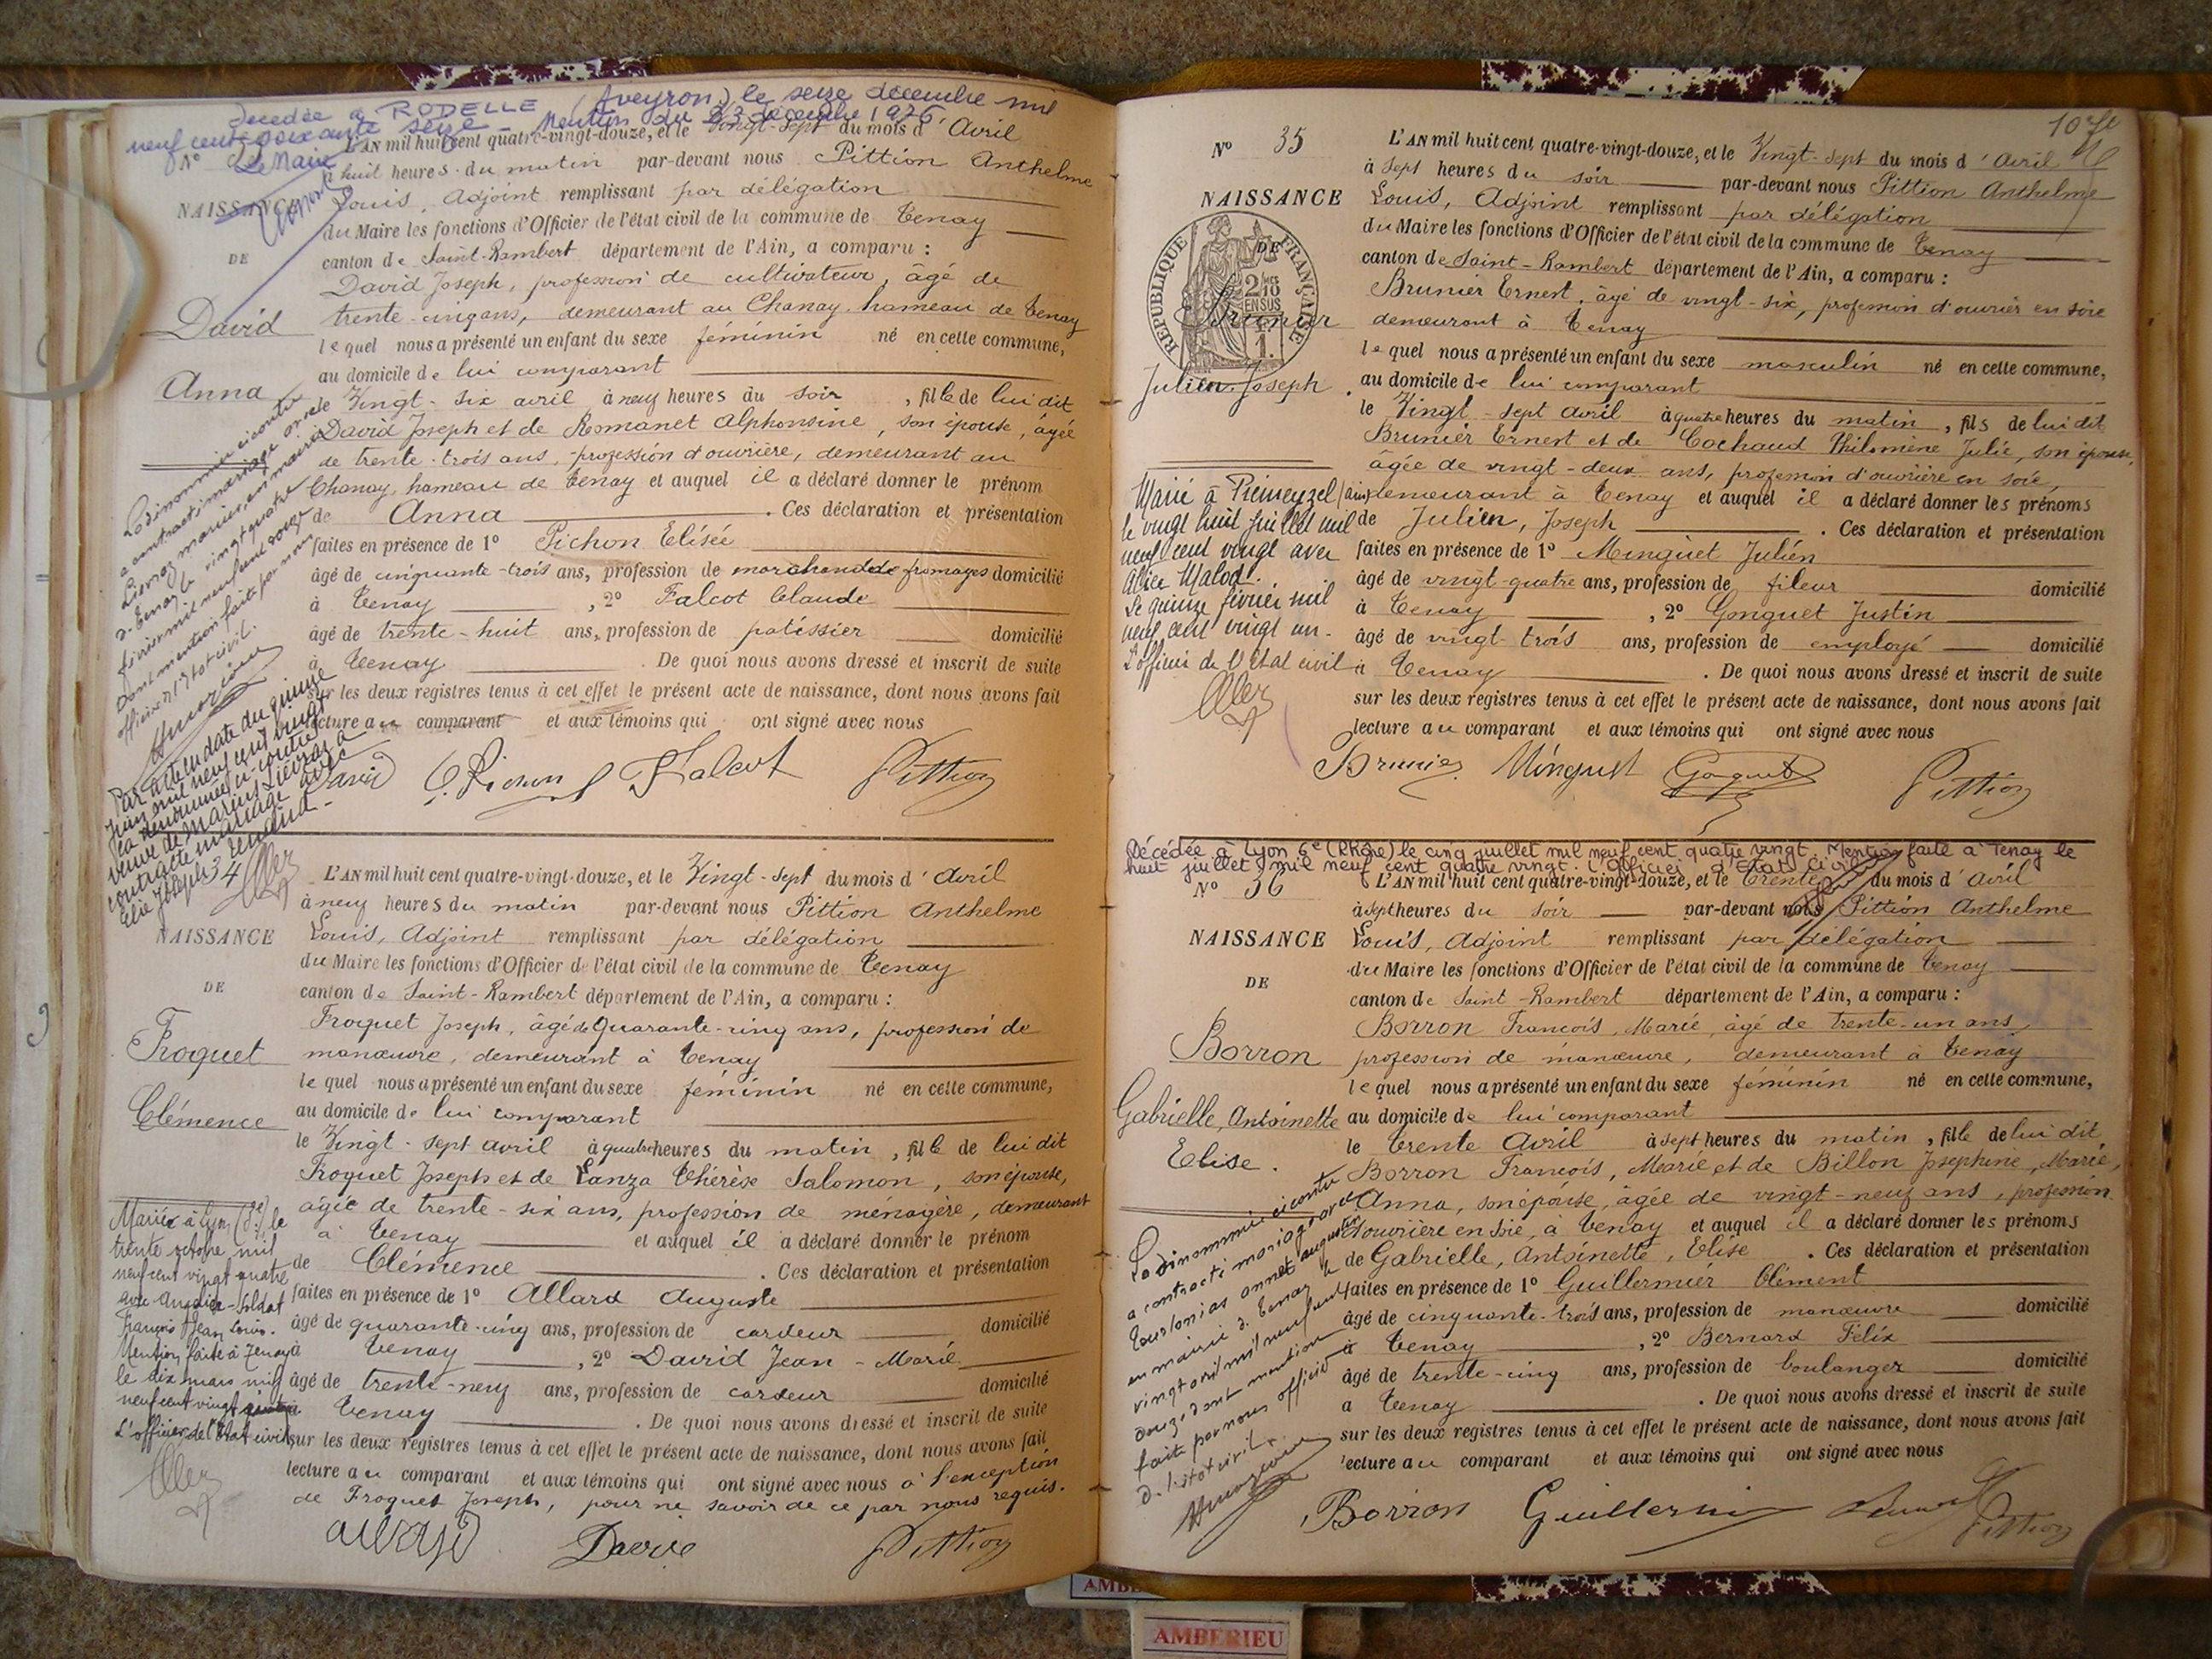 Décédée à RODELLE (Aveyron) le seize décembre mil
neuf cent soixante seize - Mention du 23 décembre 1976
Le Maire
N°
L'AN mil huit cent quatre-vingt-douze, et le Vingt-Sept du mois d'Avril
à huit heures du matin par-devant nous Pittion Anthelme
NAISSANCE
Louis, Adjoint remplissant par délégation
du Maire les fonctions d'Officier de l'état civil de la commune de Tenay
DE
canton de Saint-Rambert département de l'Ain, a comparu :
David Joseph, profession de cultivateur, âgé de
David
trente-cinq ans, demeurant au Chanay, hameau de Tenay
lequel nous a présenté un enfant du sexe féminin né en cette commune,
au domicile de lui comparant
Anna
le Vingt-six avril à neuf heures du soir, fille de lui dit
David Joseph et de Romanet Alphonsine, son épouse, âgée
de trente-trois ans, profession d'ouvrière, demeurant au
Chanay, hameau de Tenay et auquel il a déclaré donner le prénom
de Anna . Ces déclaration et présentation
faites en présence de 1° Pichon Elisée
âgé de cinquante-trois ans, profession de marchand de fromages domicilié
à Tenay , 2° Falcot Claude
âgé de trente-huit ans, profession de patissier domicilié
à Tenay . De quoi nous avons dressé et inscrit de suite
sur les deux registres tenus à cet effet le présent acte de naissance, dont nous avons fait
lecture au comparant et aux témoins qui ont signé avec nous
La dénommée ci contre
a contracté mariage avec
marius, en mairie
d. Tenay le vingt quatre
février mil neuf cent douze
Dont mention faite par nous
officier d l'état civil.
Par acte en date du quinze
juin mil neuf cent vingt
la dénommée ci-contre
veuve de Marius
contracté mariage avec
Elie Joseph
David E. Pichon Falcot Pittion
34
L'AN mil huit cent quatre-vingt-douze, et le Vingt-Sept du mois d'Avril
à neuf heures du matin par-devant nous Pittion Anthelme
NAISSANCE
Louis, Adjoint remplissant par délégation
du Maire les fonctions d'Officier de l'état civil de la commune de Tenay
DE
canton de Saint-Rambert département de l'Ain, a comparu :
Froquet Joseph, âgé de Quarante-cinq ans, profession de
Froquet
manœuvre, demeurant à Tenay
lequel nous a présenté un enfant du sexe féminin né en cette commune,
Clémence
au domicile de lui comparant
le Vingt-sept avril à quatre heures du matin, fille de lui dit
Froquet Joseph et de Lanza Thérèse Salomon, son épouse,
âgée de trente-six ans, profession de ménagère, demeurant
à Tenay et auquel il a déclaré donner le prénom
de Clémence . Ces déclaration et présentation
faites en présence de 1° Allard Auguste
âgé de quarante-cinq ans, profession de cardeur domicilié
à Tenay , 2° David Jean-Marie
âgé de trente-neuf ans, profession de cardeur domicilié
à Tenay . De quoi nous avons dressé et inscrit de suite
sur les deux registres tenus à cet effet le présent acte de naissance, dont nous avons fait
lecture au comparant et aux témoins qui ont signé avec nous à l'exception
de Froquet Joseph, pour ne savoir de ce par nous requis.
Mariée à Lyon (8e) le
trente octobre mil
neuf cent vingt quatre
avec
François Jean Louis.
Mention faite à Tenay
le dix mars mil
neuf cent vingt
L'officier de l'état civil
allard David Pittion
10 f
N° 35
L'AN mil huit cent quatre-vingt-douze, et le Vingt-Sept du mois d'Avril
à Sept heures du soir par-devant nous Pittion Anthelme
NAISSANCE
Louis, Adjoint remplissant par délégation
du Maire les fonctions d'Officier de l'état civil de la commune de Tenay
DE
RÉPUBLIQUE FRANÇAISE
2/10 EN SUS
1.
canton de Saint-Rambert département de l'Ain, a comparu :
Brunier Ernest, âgé de vingt-six, profession d'ouvrier en soie
Brunier
demeurant à Tenay
lequel nous a présenté un enfant du sexe masculin né en cette commune,
Julien Joseph
au domicile de lui comparant
le Vingt-sept avril à quatre heures du matin, fils de lui dit
Brunier Ernest et de Cochaud Philomène Julie, son épouse,
âgée de vingt-deux ans, profession d'ouvrière en soie,
demeurant à Tenay et auquel il a déclaré donner les prénoms
de Julien, Joseph . Ces déclaration et présentation
faites en présence de 1° Minguet Julien
âgé de vingt-quatre ans, profession de fileur domicilié
à Tenay , 2° Gonguet Justin
âgé de vingt-trois ans, profession de employé domicilié
à Tenay . De quoi nous avons dressé et inscrit de suite
sur les deux registres tenus à cet effet le présent acte de naissance, dont nous avons fait
lecture au comparant et aux témoins qui ont signé avec nous
Marié à (Ain)
le vingt huit juillet mil
neuf cent vingt avec
Alice Malod.
Le quinze février mil
neuf cent vingt un.
L'officier de l'état civil
Brunier Minguet Gonguet Pittion
Décédée à Lyon 6e (Rhône) le cinq juillet mil neuf cent quatre vingt. Mention faite à Tenay le
huit juillet mil neuf cent quatre vingt. L'officier d'Etat Civil
N° 36
L'AN mil huit cent quatre-vingt-douze, et le Trente du mois d'Avril
à sept heures du soir par-devant nous Pittion Anthelme
NAISSANCE
Louis, Adjoint remplissant par délégation
du Maire les fonctions d'Officier de l'état civil de la commune de Tenay
DE
canton de Saint-Rambert département de l'Ain, a comparu :
Borron François, Marie, âgé de trente-un ans
Borron
profession de manœuvre, demeurant à Tenay
lequel nous a présenté un enfant du sexe féminin né en cette commune,
Gabrielle, Antoinette
au domicile de lui comparant
Elise.
le Trente Avril à sept heures du matin, fille de lui dit
Borron François, Marie et de Billon Josephine, Marie,
Anna, son épouse, âgée de vingt-neuf ans, profession
d'ouvrière en soie, à Tenay et auquel il a déclaré donner les prénoms
de Gabrielle, Antoinette, Elise . Ces déclaration et présentation
faites en présence de 1° Guillermier Clément
âgé de cinquante-trois ans, profession de manœuvre domicilié
à Tenay , 2° Bernard Félix
âgé de trente-cinq ans, profession de boulanger domicilié
à Tenay . De quoi nous avons dressé et inscrit de suite
sur les deux registres tenus à cet effet le présent acte de naissance, dont nous avons fait
lecture au comparant et aux témoins qui ont signé avec nous
La dénommée ci contre
a contracté mariage avec
en mairie d. Tenay le
vingt avril mil neuf cent
douze dont mention
faite par nous officier
d. l'état civil.
Borron Guillermi Pittion
AMBERIEU